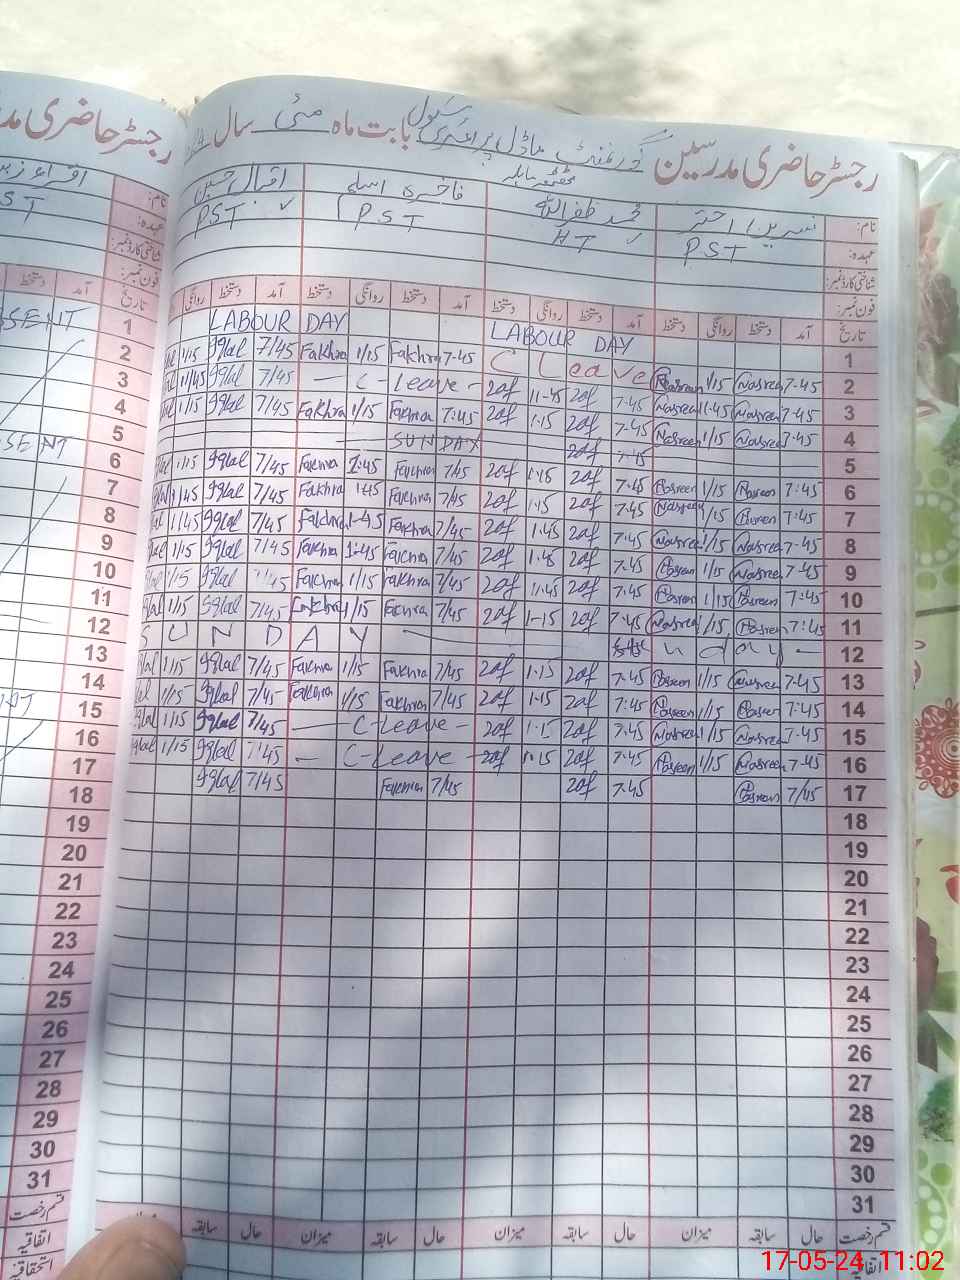 رجسٹر حاضری مدرسین گورنمنٹ ماڈل پرائمری سکول بابت ماہ مئی سال
رجسٹر حاضری مد
نام: نسرین اختر محمد ظفر اللہ فاخرہ اسلم اقبال حسین
عہدہ: PST HT PST PST
شناختی کارڈ نمبر:
فون نمبر:
تاریخ آمد دستخط روانگی دستخط آمد دستخط روانگی دستخط آمد دستخط روانگی دستخط آمد دستخط روانگی
1 LABOUR DAY LABOUR DAY
2 7-45 Nasreen 1/15 Nasreen C Leave 7-45 Fakhra 1/15 Fakhra 7/45 Iqbal 1/15
3 7-45 Nasreen 11-45 Nasreen 7-45 Zaf 11-45 Zaf - C-Leave - 7/45 Iqbal 11/45
4 7-45 Nasreen 1/15 Nasreen 7-45 Zaf 1-15 Zaf 7:45 Fakhra 1/15 Fakhra 7/45 Iqbal 1/15
5 SUNDAY
6 7:45 Nasreen 1/15 Nasreen 7-45 Zaf 1-15 Zaf 7/45 Fakhra 1:45 Fakhra 7/45 Iqbal 1/15
7 7:45 Nasreen 1/15 Nasreen 7-45 Zaf 1-15 Zaf 7/45 Fakhra 1:45 Fakhra 7/45 Iqbal 1/45
8 7-45 Nasreen 1/15 Nasreen 7-45 Zaf 1-45 Zaf 7/45 Fakhra 1-45 Fakhra 7/45 Iqbal 1/45
9 7-45 Nasreen 1/15 Nasreen 7-45 Zaf Zaf 7/45 Fakhra 1:45 Fakhra 7/45 Iqbal 1/15
10 7:45 Nasreen 1/15 Nasreen 7-45 Zaf 11-45 Zaf 7/45 Fakhra 1/15 Fakhra Iqbal 1/15
11 7:45 Nasreen 1/15 Nasreen 7-45 Zaf 1-15 Zaf 7/45 Fakhra 1/15 Fakhra 7/45 Iqbal 1/15
12 SUNDAY Sunday
13 7-45 Nasreen 1/15 Nasreen 7-45 Zaf 1-15 Zaf 7/45 Fakhra 1/15 Fakhra 7/45 Iqbal 1/15
14 7:45 Nasreen 1/15 Nasreen 7:45 Zaf 1-15 Zaf 7/45 Fakhra 1/15 Fakhra 7/45 Iqbal 1/15
15 7-45 Nasreen 1/15 Nasreen 7-45 Zaf 1-15 Zaf - C-Leave - 7/45 Iqbal 1/15
16 7-45 Nasreen 1/15 Nasreen 7-45 Zaf 1-15 Zaf - C-Leave 7:45 Iqbal 1/15
17 7/45 Nasreen 7-45 Zaf 7/45 Fakhra 7/45 Iqbal
18
19
20
21
22
23
24
25
26
27
28
29
30
31
قسم رخصت حال سابقہ میزان حال سابقہ میزان حال سابقہ میزان حال سابقہ
اتفاقیہ
استحقاقیہ
17-05-24 11:02